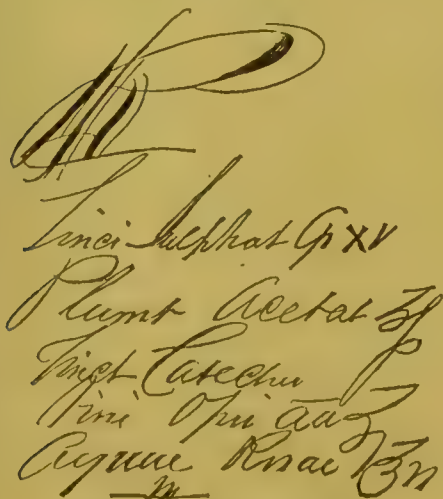 ℞
Zinci Sulphat Gr XV
Plumb Acetat ʒj
Tinct Catechu
Vini Opii āā ʒ
Aquae Rosae ℥
M